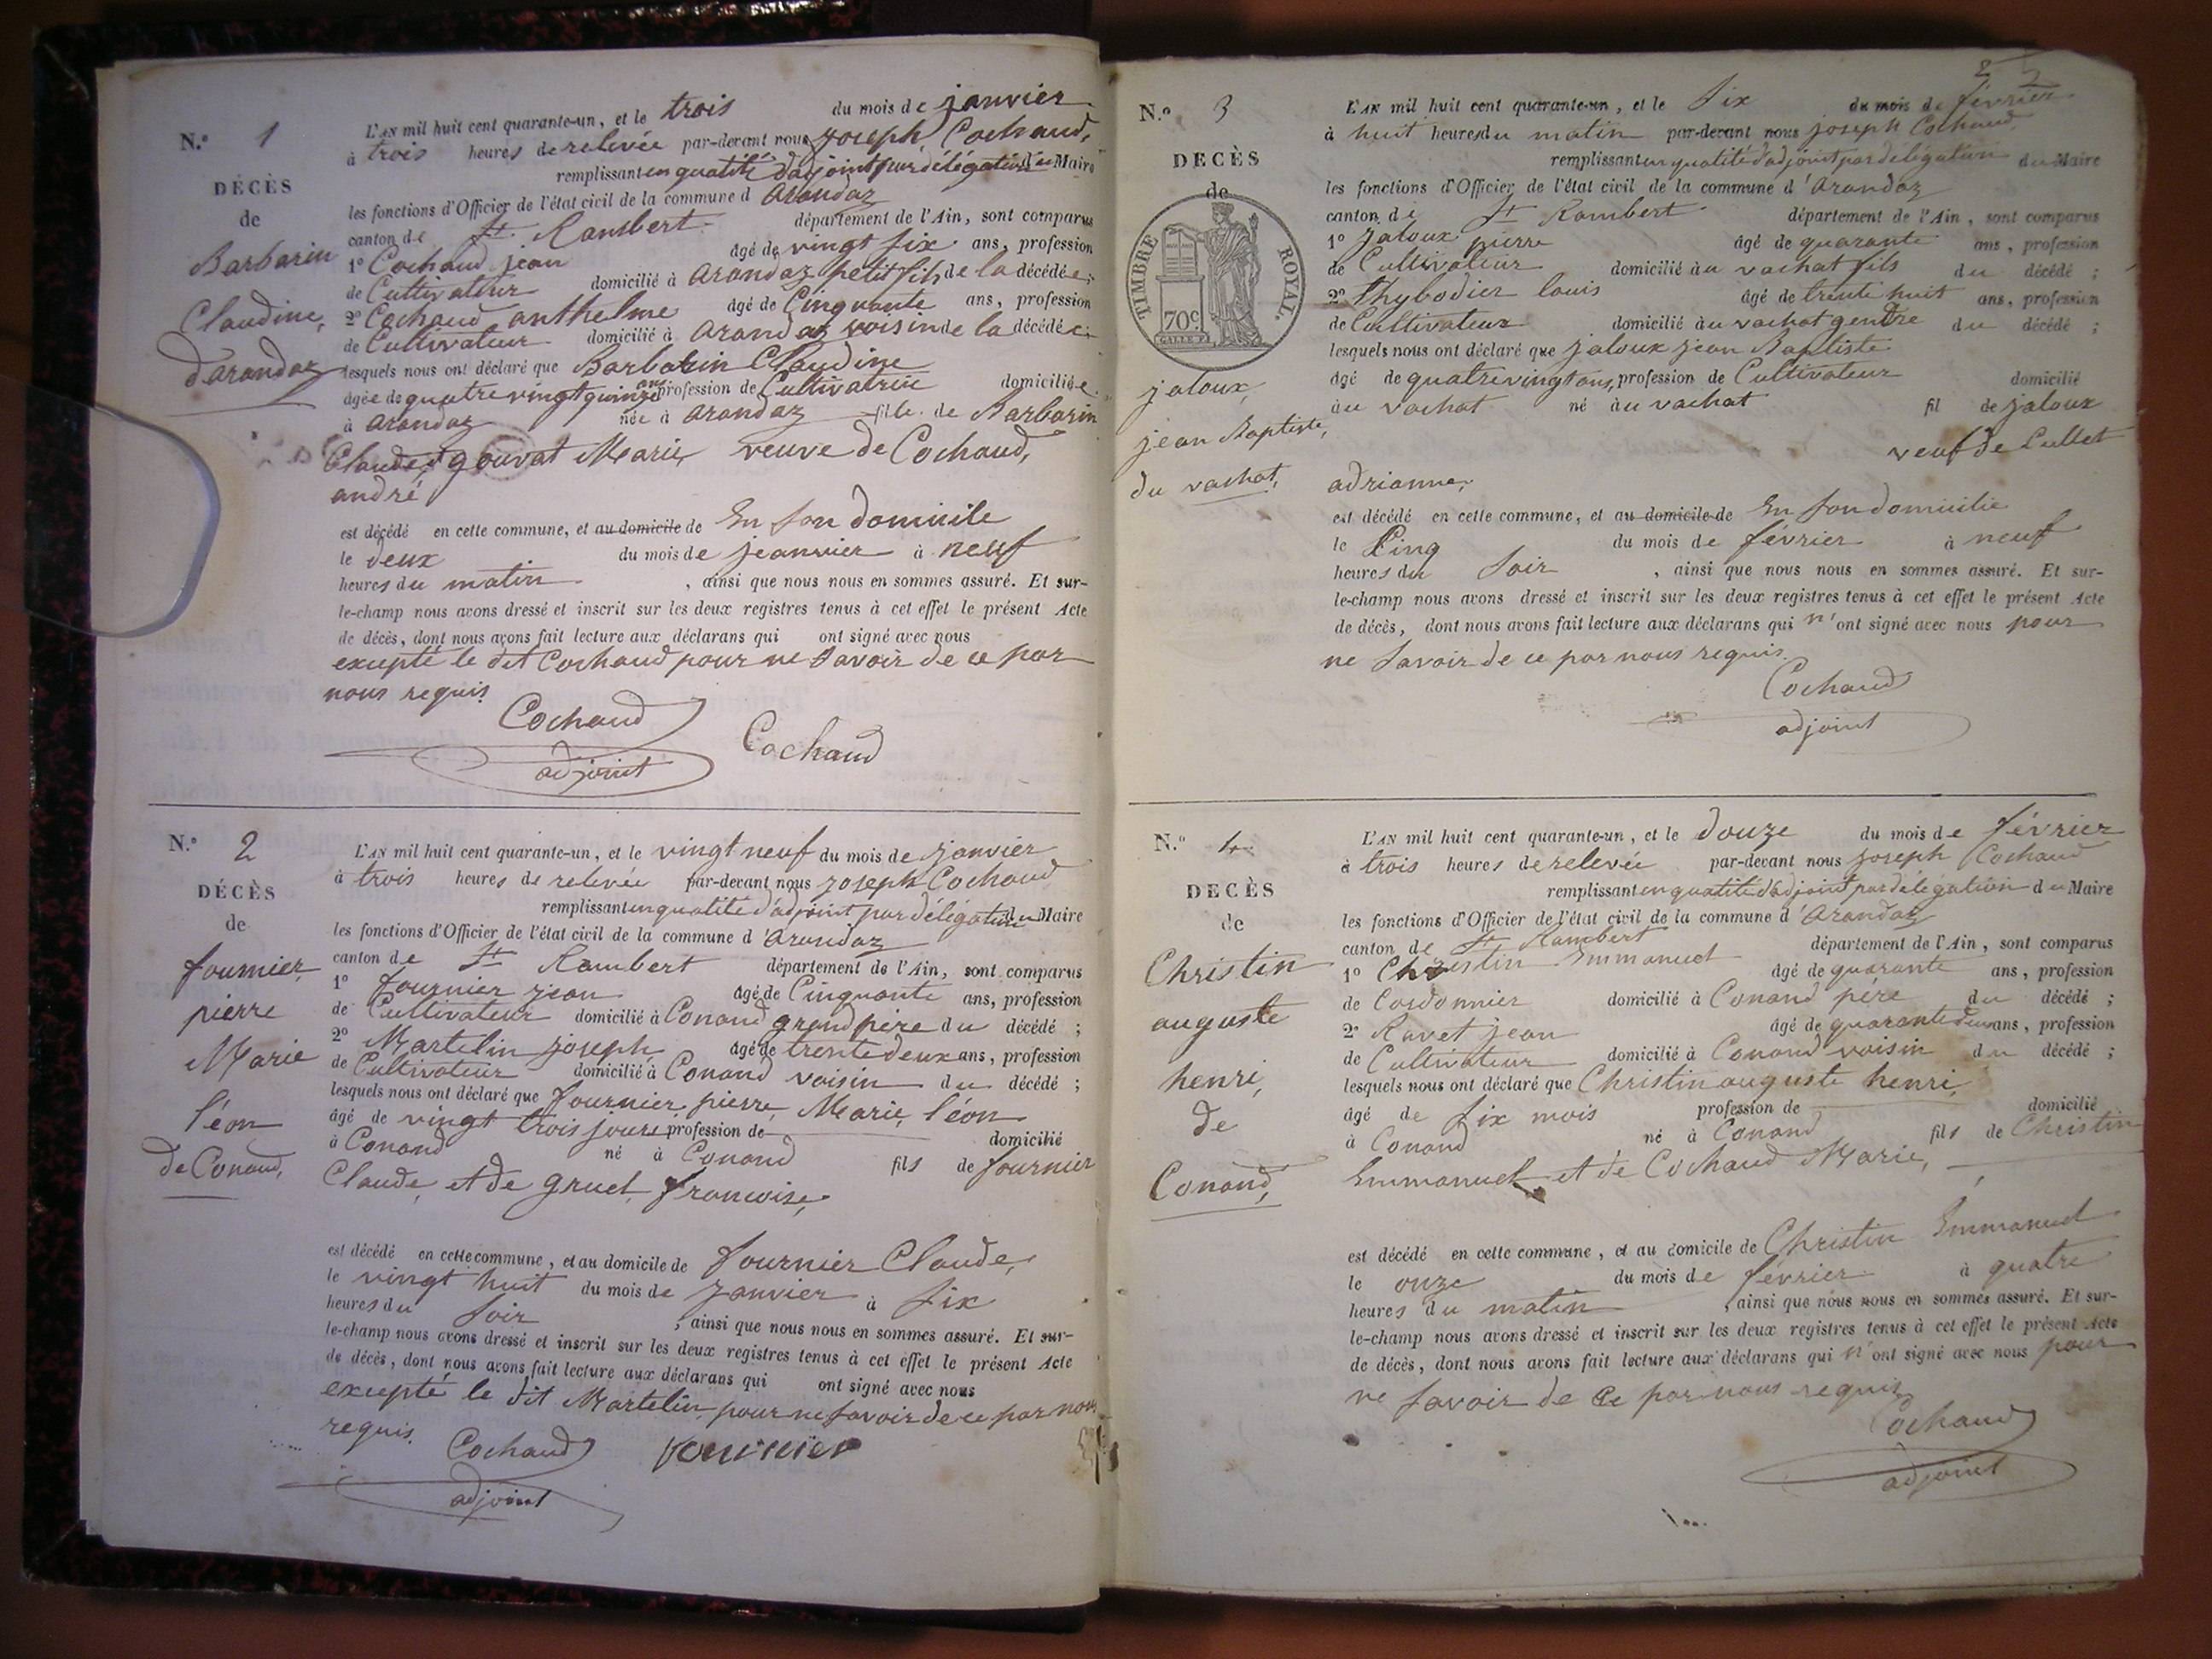 N.º 1
DÉCÈS
de
Barbarin
Claudine,
d'arandaz
L'AN mil huit cent quarante-un, et le trois du mois de janvier
à trois heures de relevée par-devant nous joseph Cochaud,
remplissant en qualité d'adjoint par délégation du Maire
les fonctions d'Officier de l'état civil de la commune d arandaz
canton de St. Rambert département de l'Ain, sont comparus
1º Cochaud jean âgé de vingt six ans, profession
de Cultivateur domicilié à arandaz petit fils de la décédée;
2º Cochaud anthelme âgé de Cinquante ans, profession
de Cultivateur domicilié à arandaz voisin de la décédée;
lesquels nous ont déclaré que Barbarin Claudine
âgée de quatre vingt quinze ans profession de Cultivatrice domiciliée
à arandaz née à arandaz fille de Barbarin
Claude, & gouvat Marie veuve de Cochaud,
andré
est décédé en cette commune, et au domicile de En son domicile
le deux du mois de jeanvier à neuf
heures du matin, ainsi que nous nous en sommes assuré. Et sur-
le-champ nous avons dressé et inscrit sur les deux registres tenus à cet effet le présent Acte
de décès, dont nous avons fait lecture aux déclarans qui ont signé avec nous
excepté le dit Cochaud pour ne savoir de ce par
nous requis.
Cochaud Cochaud
adjoint
N.º 2
DÉCÈS
de
fournier
pierre
Marie
léon
de Conand,
L'AN mil huit cent quarante-un, et le vingt neuf du mois de janvier
à trois heures de relevée par-devant nous joseph Cochaud
remplissant en qualité d'adjoint par délégation du Maire
les fonctions d'Officier de l'état civil de la commune d 'arandaz
canton de St Rambert département de l'Ain, sont comparus
1º fournier jean âgé de Cinquante ans, profession
de Cultivateur domicilié à Conand grand père du décédé ;
2º Martelin joseph âgé de trente deux ans, profession
de Cultivateur domicilié à Conand voisin du décédé ;
lesquels nous ont déclaré que fournier pierre Marie, léon
âgé de vingt trois jours profession de domicilié
à Conand né à Conand fils de fournier
Claude, et de gruel francoise,
est décédé en cette commune, et au domicile de fournier Claude,
le vingt huit du mois de janvier à six
heures du soir, ainsi que nous nous en sommes assuré. Et sur-
le-champ nous avons dressé et inscrit sur les deux registres tenus à cet effet le présent Acte
de décès, dont nous avons fait lecture aux déclarans qui ont signé avec nous
excepté le dit Martelin pour ne savoir de ce par nous
requis.
Cochaud fournier
adjoint
2
N.º 3
DECÈS
de
TIMBRE ROYAL.
70c
jaloux,
jean Baptiste,
du vachat,
L'AN mil huit cent quarante-un, et le six du mois de février
à huit heures du matin par-devant nous joseph Cochaud
remplissant en qualité d'adjoint par délégation du Maire
les fonctions d'Officier de l'état civil de la commune d 'arandaz
canton de St Rambert département de l'Ain, sont comparus
1º jaloux pierre âgé de quarante ans, profession
de Cultivateur domicilié au vachat fils du décédé ;
2º thybodier louis âgé de trente huit ans, profession
de Cultivateur domicilié au vachat gendre du décédé ;
lesquels nous ont déclaré que jaloux jean Baptiste
âgé de quatre vingt ans, profession de Cultivateur domicilié
au vachat né au vachat fil de jaloux
veuf de Cullet
adrianne,
est décédé en cette commune, et au domicile de En son domicilie
le Cinq du mois de février à neuf
heures du soir, ainsi que nous nous en sommes assuré. Et sur-
le-champ nous avons dressé et inscrit sur les deux registres tenus à cet effet le présent Acte
de décès, dont nous avons fait lecture aux déclarans qui n'ont signé avec nous pour
ne savoir de ce par nous requis.
Cochaud
adjoint
N.º 4
DECÈS
de
Christin
auguste
henri,
de
Conand,
L'AN mil huit cent quarante-un, et le douze du mois de février
à trois heures de relevée par-devant nous joseph Cochaud
remplissant en qualité d'adjoint par délégation du Maire
les fonctions d'Officier de l'état civil de la commune d 'arandaz
canton de St Rambert département de l'Ain, sont comparus
1º Christin Emmanuel âgé de quarante ans, profession
de Cordonnier domicilié à Conand père du décédé ;
2º Ravet jean âgé de quarante deux ans, profession
de Cultivateur domicilié à Conand voisin du décédé ;
lesquels nous ont déclaré que Christin auguste henri,
âgé de six mois profession de domicilié
à Conand né à Conand fils de Christin
Emmanuel et de Cochaud Marie,
est décédé en cette commune, et au domicile de Christin Emmanuel
le onze du mois de février à quatre
heures du matin, ainsi que nous nous en sommes assuré. Et sur-
le-champ nous avons dressé et inscrit sur les deux registres tenus à cet effet le présent Acte
de décès, dont nous avons fait lecture aux déclarans qui n'ont signé avec nous pour
ne savoir de ce par nous requis
Cochaud
adjoint